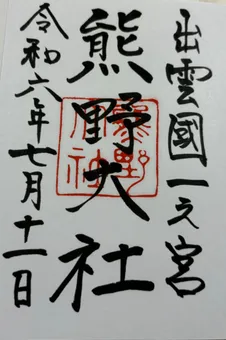 出雲國一之宮
熊野大社
令和六年七月十一日
熊野大社